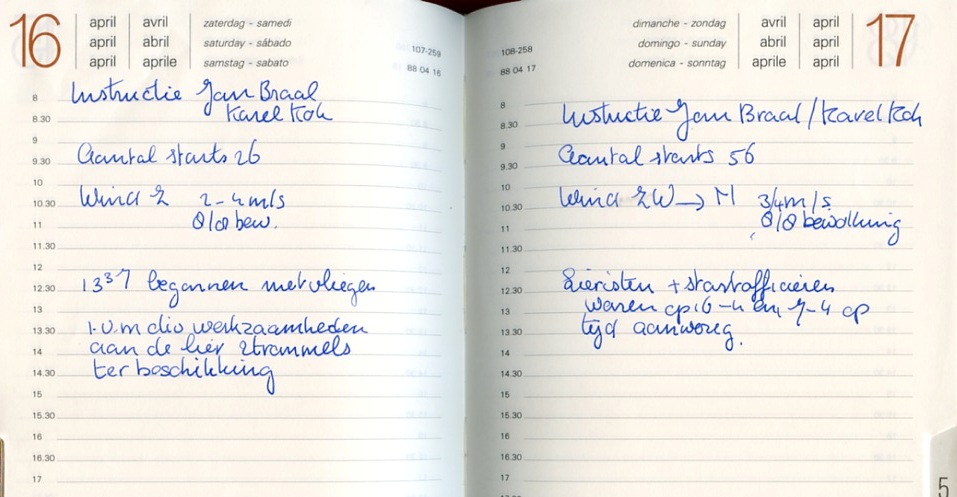 16
april avril zaterdag - samedi
april abril saturday - sábado
april aprile samstag - sabato
107-259
88 04 16
8 Instructie Jan Braal
8.30 Karel Kok
9
9.30 Aantal starts 26
10
10.30 Wind Z 2-4 m/s
11 8/8 bew.
11.30
12
12.30 13 37 begonnen met vliegen
13
13.30 i.v.m div werkzaamheden
14 aan de lier 2 trommels
14.30 ter beschikking
15
15.30
16
16.30
17
17
dimanche - zondag avril april
domingo - sunday abril april
domenica - sonntag aprile april
108-258
88 04 17
8
8.30 Instructie Jan Braal / Karel Kok
9
9.30 Aantal starts 56
10
10.30 Wind ZW → N 3/4 m/s
11 8/8 bewolking
11.30
12
12.30 Lieristen + startofficieren
13 waren op 16-4 en 17-4 op
13.30 tijd aanwezig.
14
14.30
15
15.30
16
16.30
17
5